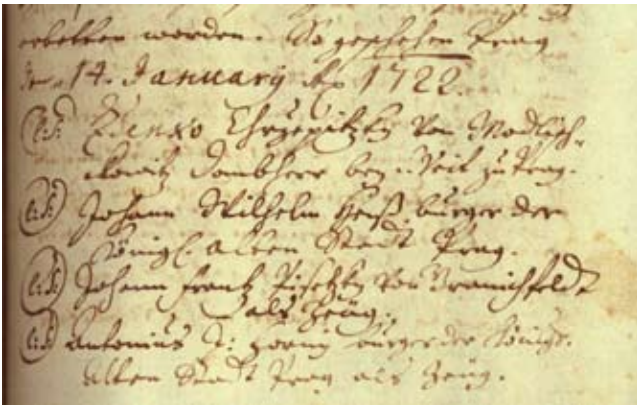 erbetten worden. So geschehen Prag
den 14. January Ao 1722.
(L:S:) Zdenko Chrzepitzky von Modlisch-
kowitz Dombherr bey S. Veit zu Prag.
(L:S:) Johann Wilhelm Heiß burger der
Königl. alten Stadt Prag.
(L:S:) Johann Frantz Pisetzky von Kranichfeldt
als Zeüg.
(L:S:) Antonius burger der Königl.
Alten Stadt Prag als Zeüg.